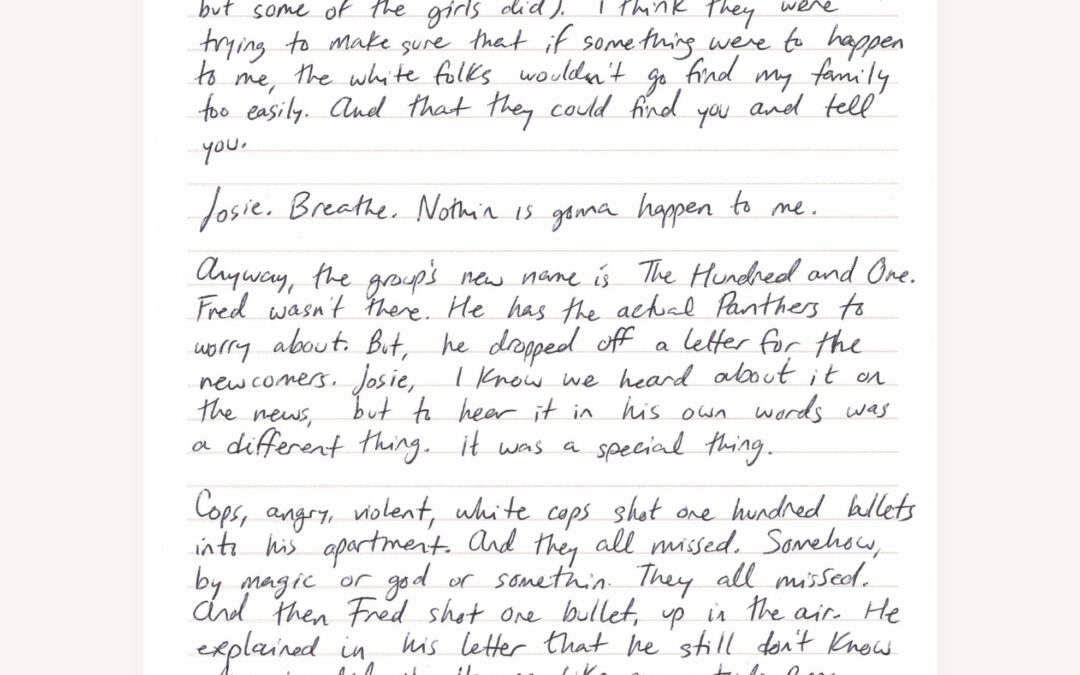 but some of the girls did). I think they were
trying to make sure that if something were to happen
to me, the white folks wouldn't go find my family
too easily. And that they could find you and tell
you.
Josie. Breathe. Nothin is gonna happen to me.
Anyway, the group's new name is The Hundred and One.
Fred wasn't there. He has the actual Panthers to
worry about. But, he dropped off a letter for the
newcomers. Josie, I know we heard about it on
the news, but to hear it in his own words was
a different thing. it was a special thing.
Cops, angry, violent, white cops shot one hundred bullets
into his apartment. And they all missed. Somehow,
by magic or god or somethin. They all missed.
And then Fred shot one bullet, up in the air. He
explained in his letter that he still don't know